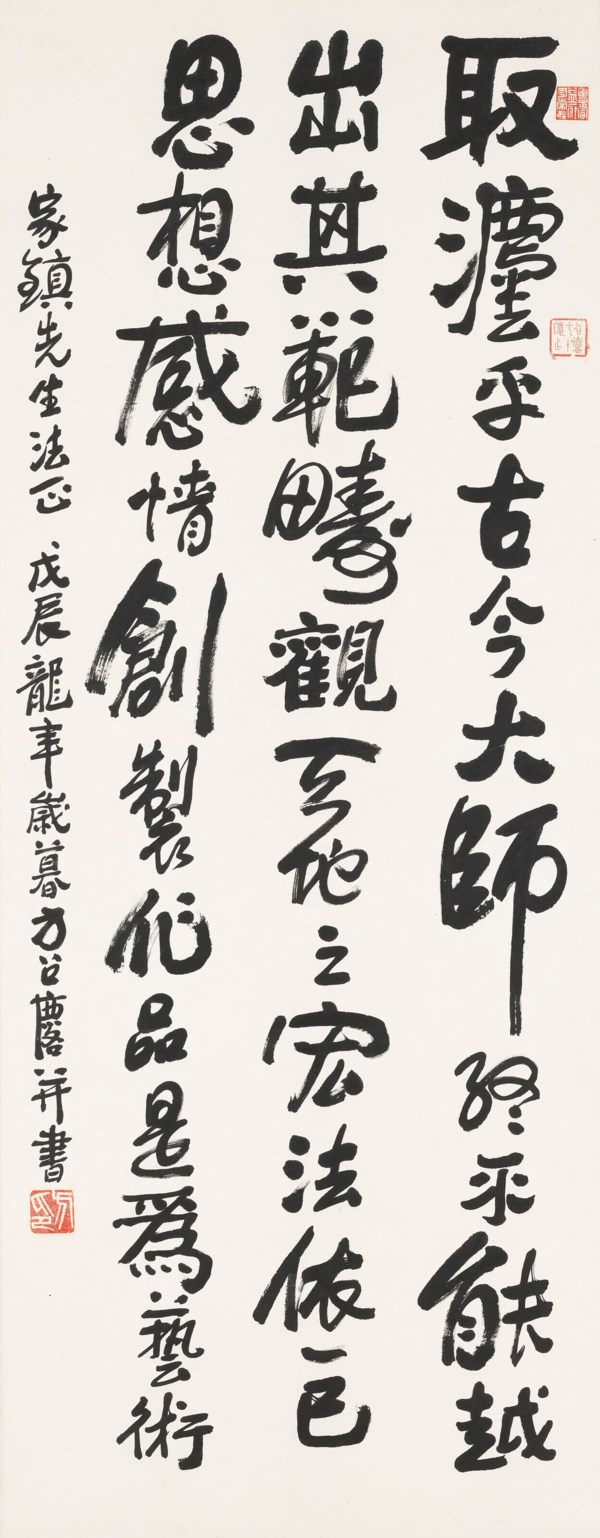 取灋乎古今大師終乎能越
出其範疇觀天地之宏法依一己
思想感情創製作品是為藝術
家鎮先生法正 戊辰龍年歲暮方召麐并書